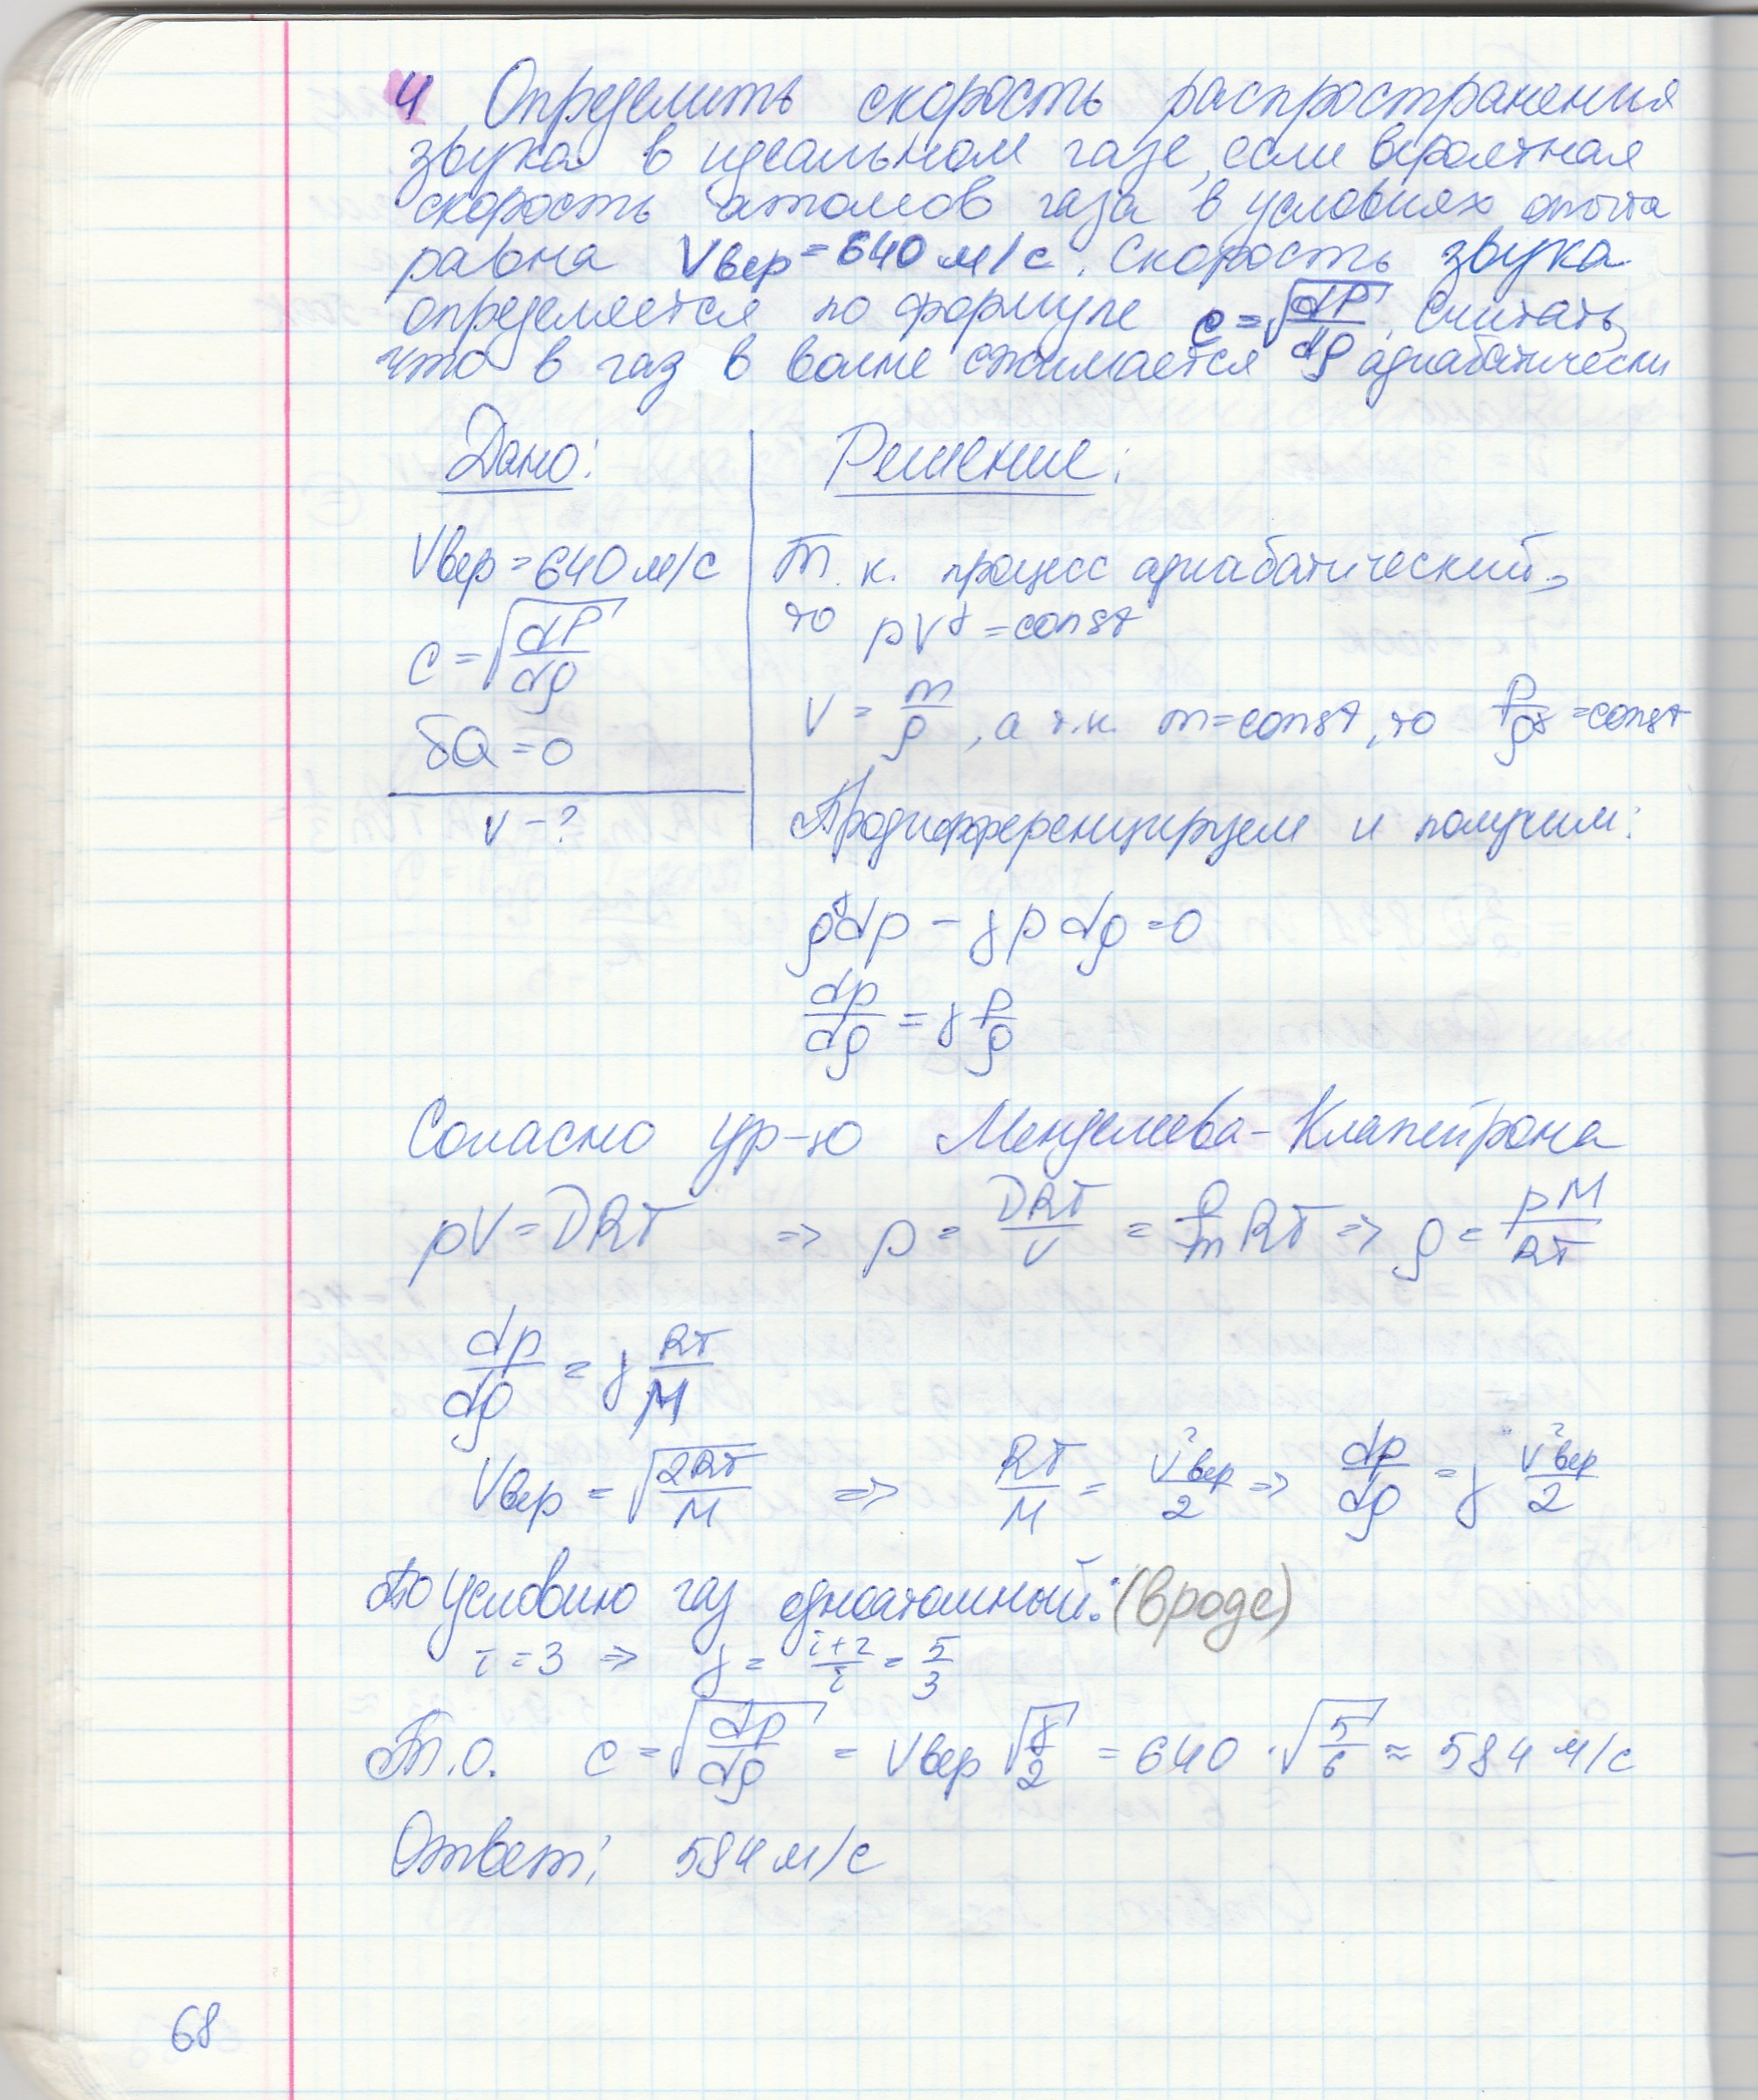 4 Определить скорость распространения
звука в идеальном газе, если вероятная
скорость атомов газа в условиях опыта
равна Vвер = 640 м/с. Скорость звука
определяется по формуле c = √(dP/dρ). Считать,
что в газ в волне сжимается адиабатически
Дано:
Vвер = 640 м/с
c = √(dP/dρ)
δQ = 0
v - ?
Решение:
Т. к. процесс адиабатический,
то pV^γ = const
V = m/ρ, а т.к. m = const, то p/ρ^γ = const
Продифференцируем и получим:
ρdp - γpdρ = 0
dp/dρ = γ p/ρ
Согласно ур-ю Менделеева-Клапейрона
pV = νRT => p = νRT/V = ρ/m RT => ρ = pM/RT
dp/dρ = γ RT/M
Vвер = √(2RT/M) => RT/M = V²вер/2 => dp/dρ = γ V²вер/2
По условию газ одноатомный: (вроде)
i = 3 => γ = i+2/i = 5/3
Т.О. c = √(dp/dρ) = Vвер √(γ/2) = 640 · √(5/6) ≈ 584 м/с
Ответ: 584 м/с
68